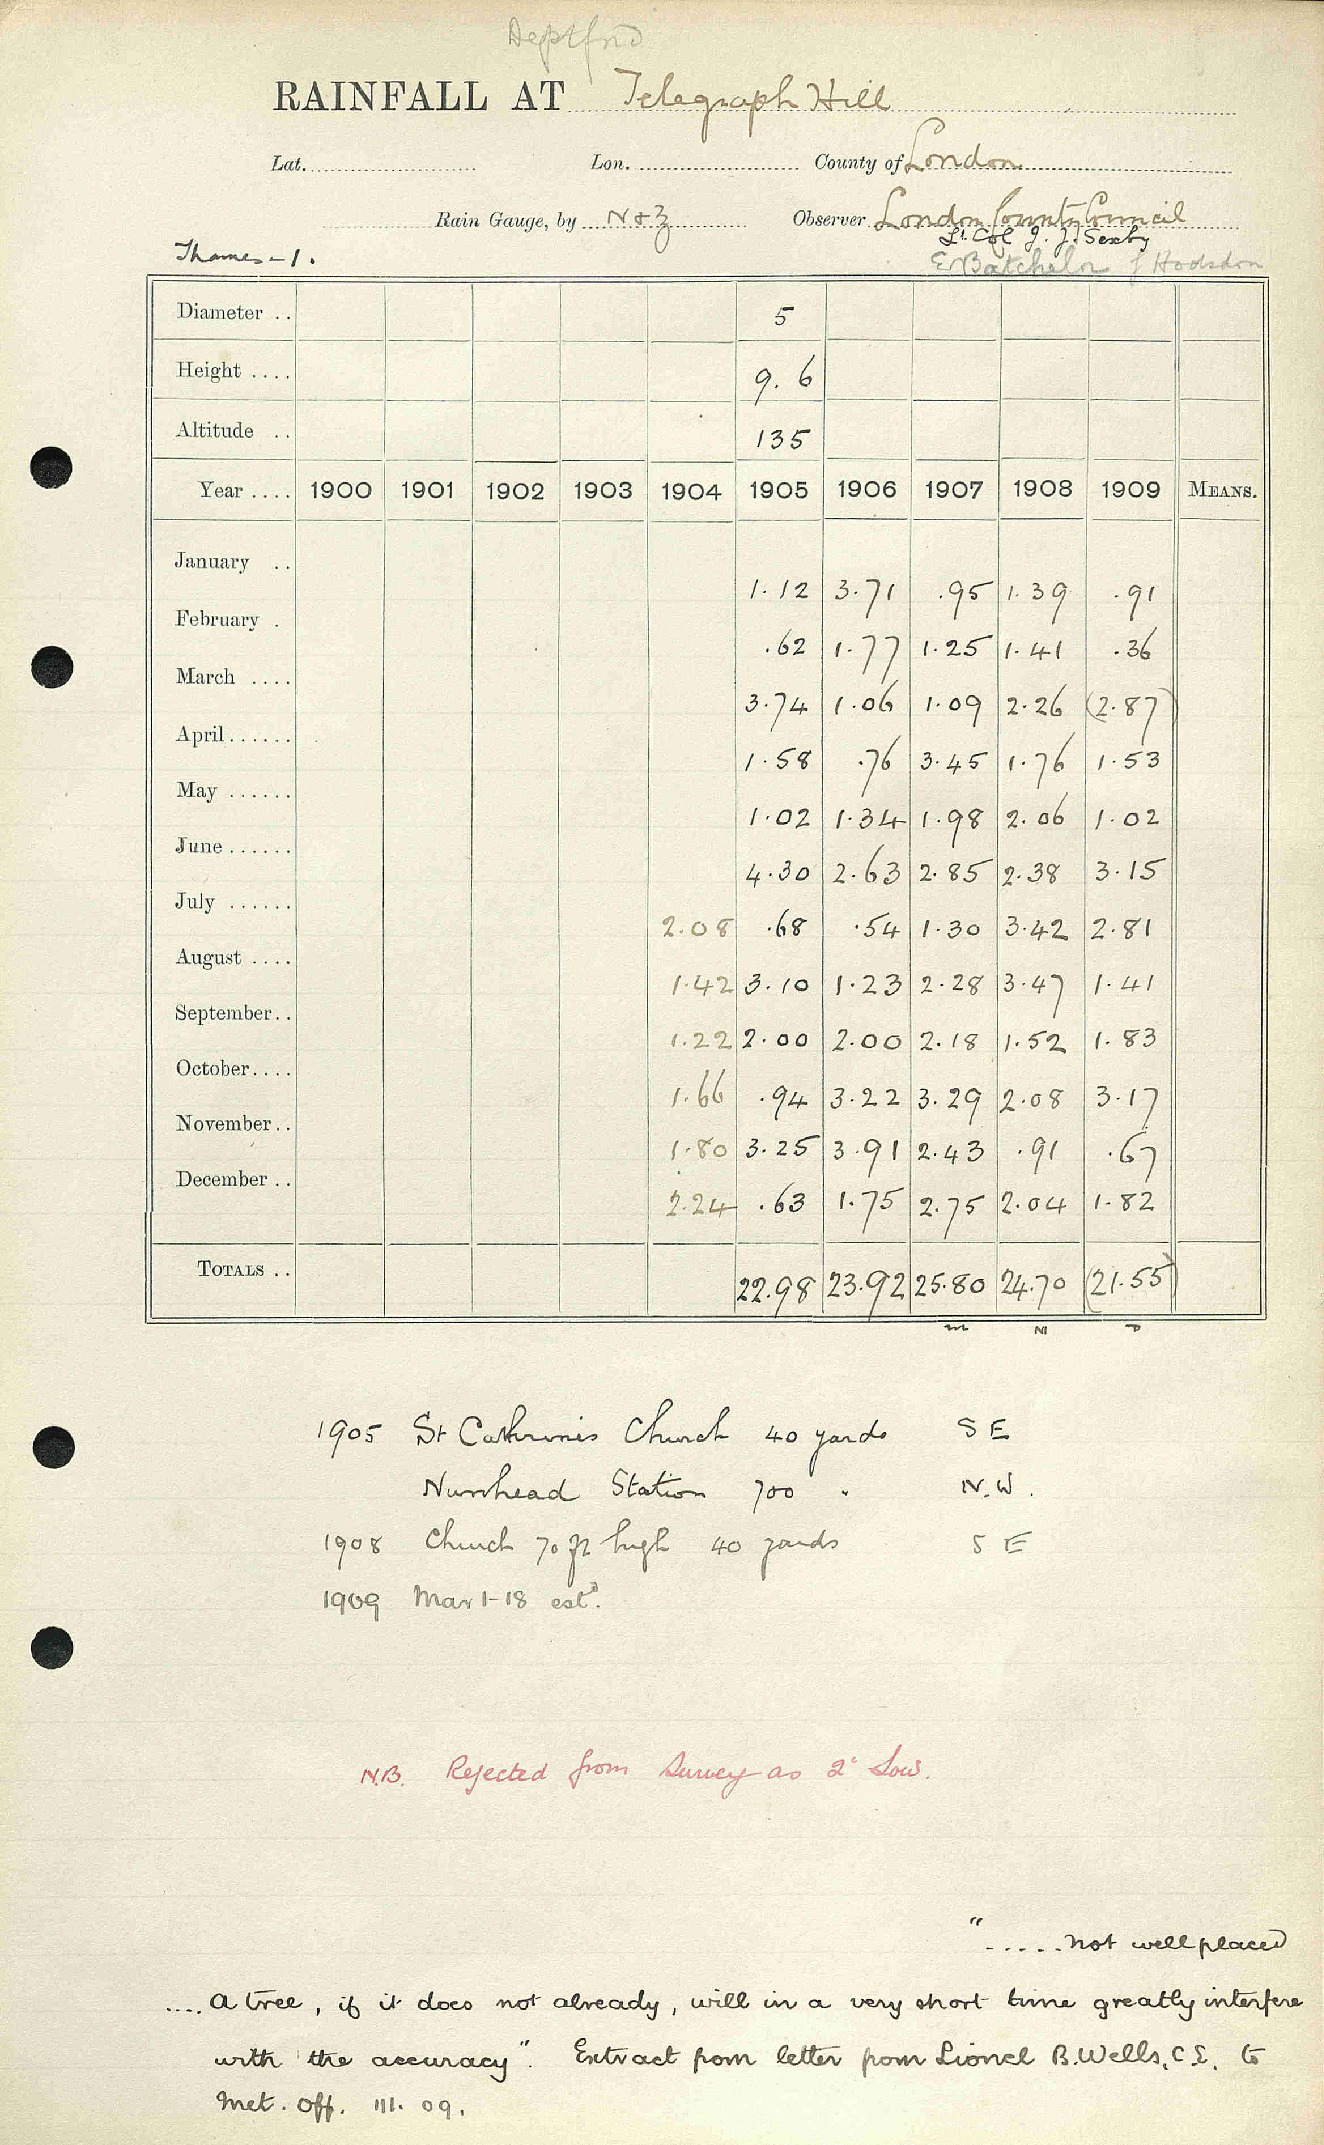 Deptford
RAINFALL AT Telegraph Hill
Lat. Lon. County of London
Rain Gauge, by N & Z Observer London County Council
Lt. Col J. J. Sexby
Thames - 1. E Batchelor J Hodsdon
Diameter .. 5
Height .... 9. 6
Altitude .. 135
Year .... 1900 1901 1902 1903 1904 1905 1906 1907 1908 1909 MEANS.
January .. 1.12 3.71 .95 1.39 .91
February . .62 1.77 1.25 1.41 .36
March .... 3.74 1.06 1.09 2.26 (2.87)
April...... 1.58 .76 3.45 1.76 1.53
May ...... 1.02 1.34 1.98 2.06 1.02
June...... 4.30 2.63 2.85 2.38 3.15
July ...... 2.08 .68 .54 1.30 3.42 2.81
August .... 1.42 3.10 1.23 2.28 3.47 1.41
September.. 1.22 2.00 2.00 2.18 1.52 1.83
October.... 1.66 .94 3.22 3.29 2.08 3.17
November.. 1.80 3.25 3.91 2.43 .91 .67
December .. 2.24 .63 1.75 2.75 2.04 1.82
TOTALS .. 22.98 23.92 25.80 24.70 (21.55)
1905 St Cathrines Church 40 yards S E
Nunhead Station 700 " N.W.
1908 Church 70 ft high 40 yards S E
1909 Mar 1-18 estd.
N.B. Rejected from Survey as 2" low.
" ..... not well placed
.... A tree, if it does not already, will in a very short time greatly interfere
with the accuracy". Extract from letter from Lionel B. Wells, C.E. to
Met. Off. III. 09.